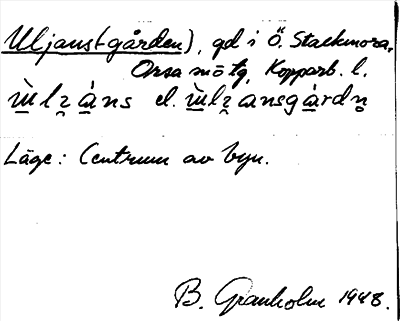 Uljans(gården), gd i Ö. Stackmora,
Orsa sn o tg, Kopparb. l.
ẁlʒáns el. ẁlʒansgàrdn̥
Läge: Centrum av byn.
B. Granholm 1948.